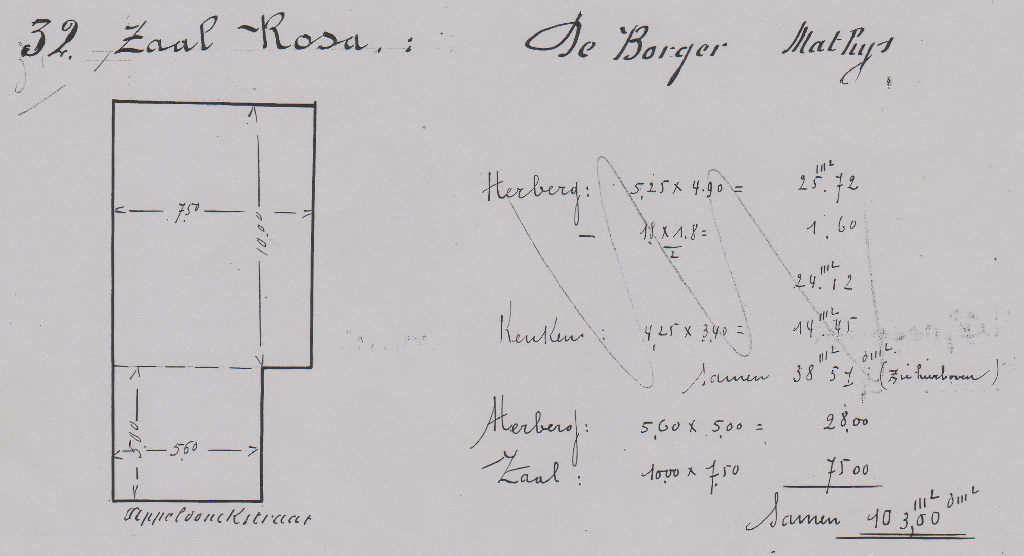 32. Zaal Rosa. : De Borger Mathys
7.50
10.00
5.00
5.60
Appeldonckstraat
Herberg: 5.25 x 4.90 = 25.72 m²
- 1.8 x 1.8 = 1.60
2
24.12 m²
Keuken: 4.25 x 3.40 = 14.45 m²
Samen 38 m² 57 dm² (Zie hierboven)
Herberg: 5,60 x 5,00 = 28,00
Zaal: 10.00 x 7,50 75 00
Samen 103,00 m² dm²